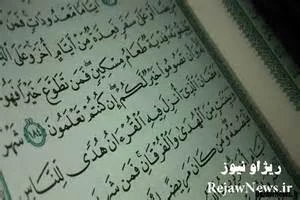 أَيَّامًا مَّعْدُودَاتٍ فَمَن
أَوْ عَلَىٰ سَفَرٍ فَعِدَّةٌ مِّنْ أَيَّامٍ أُخَرَ وَعَلَى الَّذِ
طَعَامُ مِسْكِينٍ فَمَن تَطَوَّعَ خَيْرًا فَهُوَ
تَصُومُوا خَيْرٌ لَّكُمْ إِن كُنتُمْ تَعْلَمُونَ ١٨٤ شَهْرُ
رَمَضَانَ الَّذِي أُنزِلَ فِيهِ الْقُرْءَانُ هُدًى لِّلنَّاسِ
وَبَيِّنَاتٍ مِّنَ الْهُدَىٰ وَالْفُرْقَانِ فَمَن شَ
وَمَن كَانَ مَرِيضًا
ریژاو نیوز
RejawNews.ir